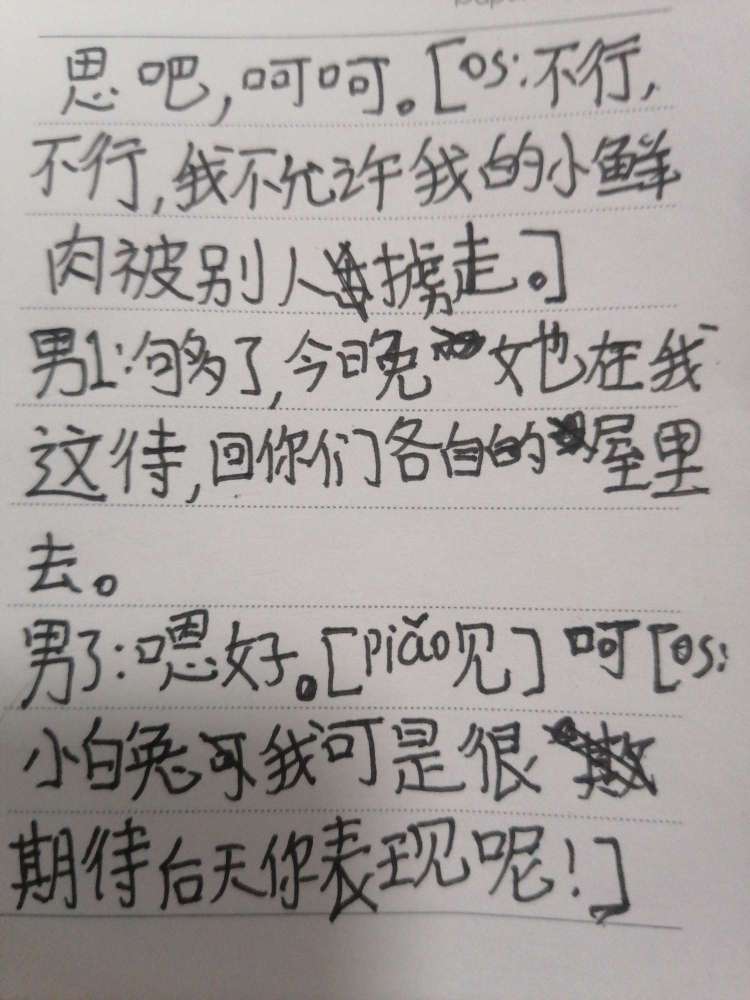 思吧,呵呵。[os:不行,
不行,我不允许我的小鲜
肉被别人掳走。]
男1:够了,今日免女也在我
这待,回你们各自的屋里
去。
男3:嗯好。[piǎo见]呵[os:
小白兔可我可是很
期待后天你表现呢!]